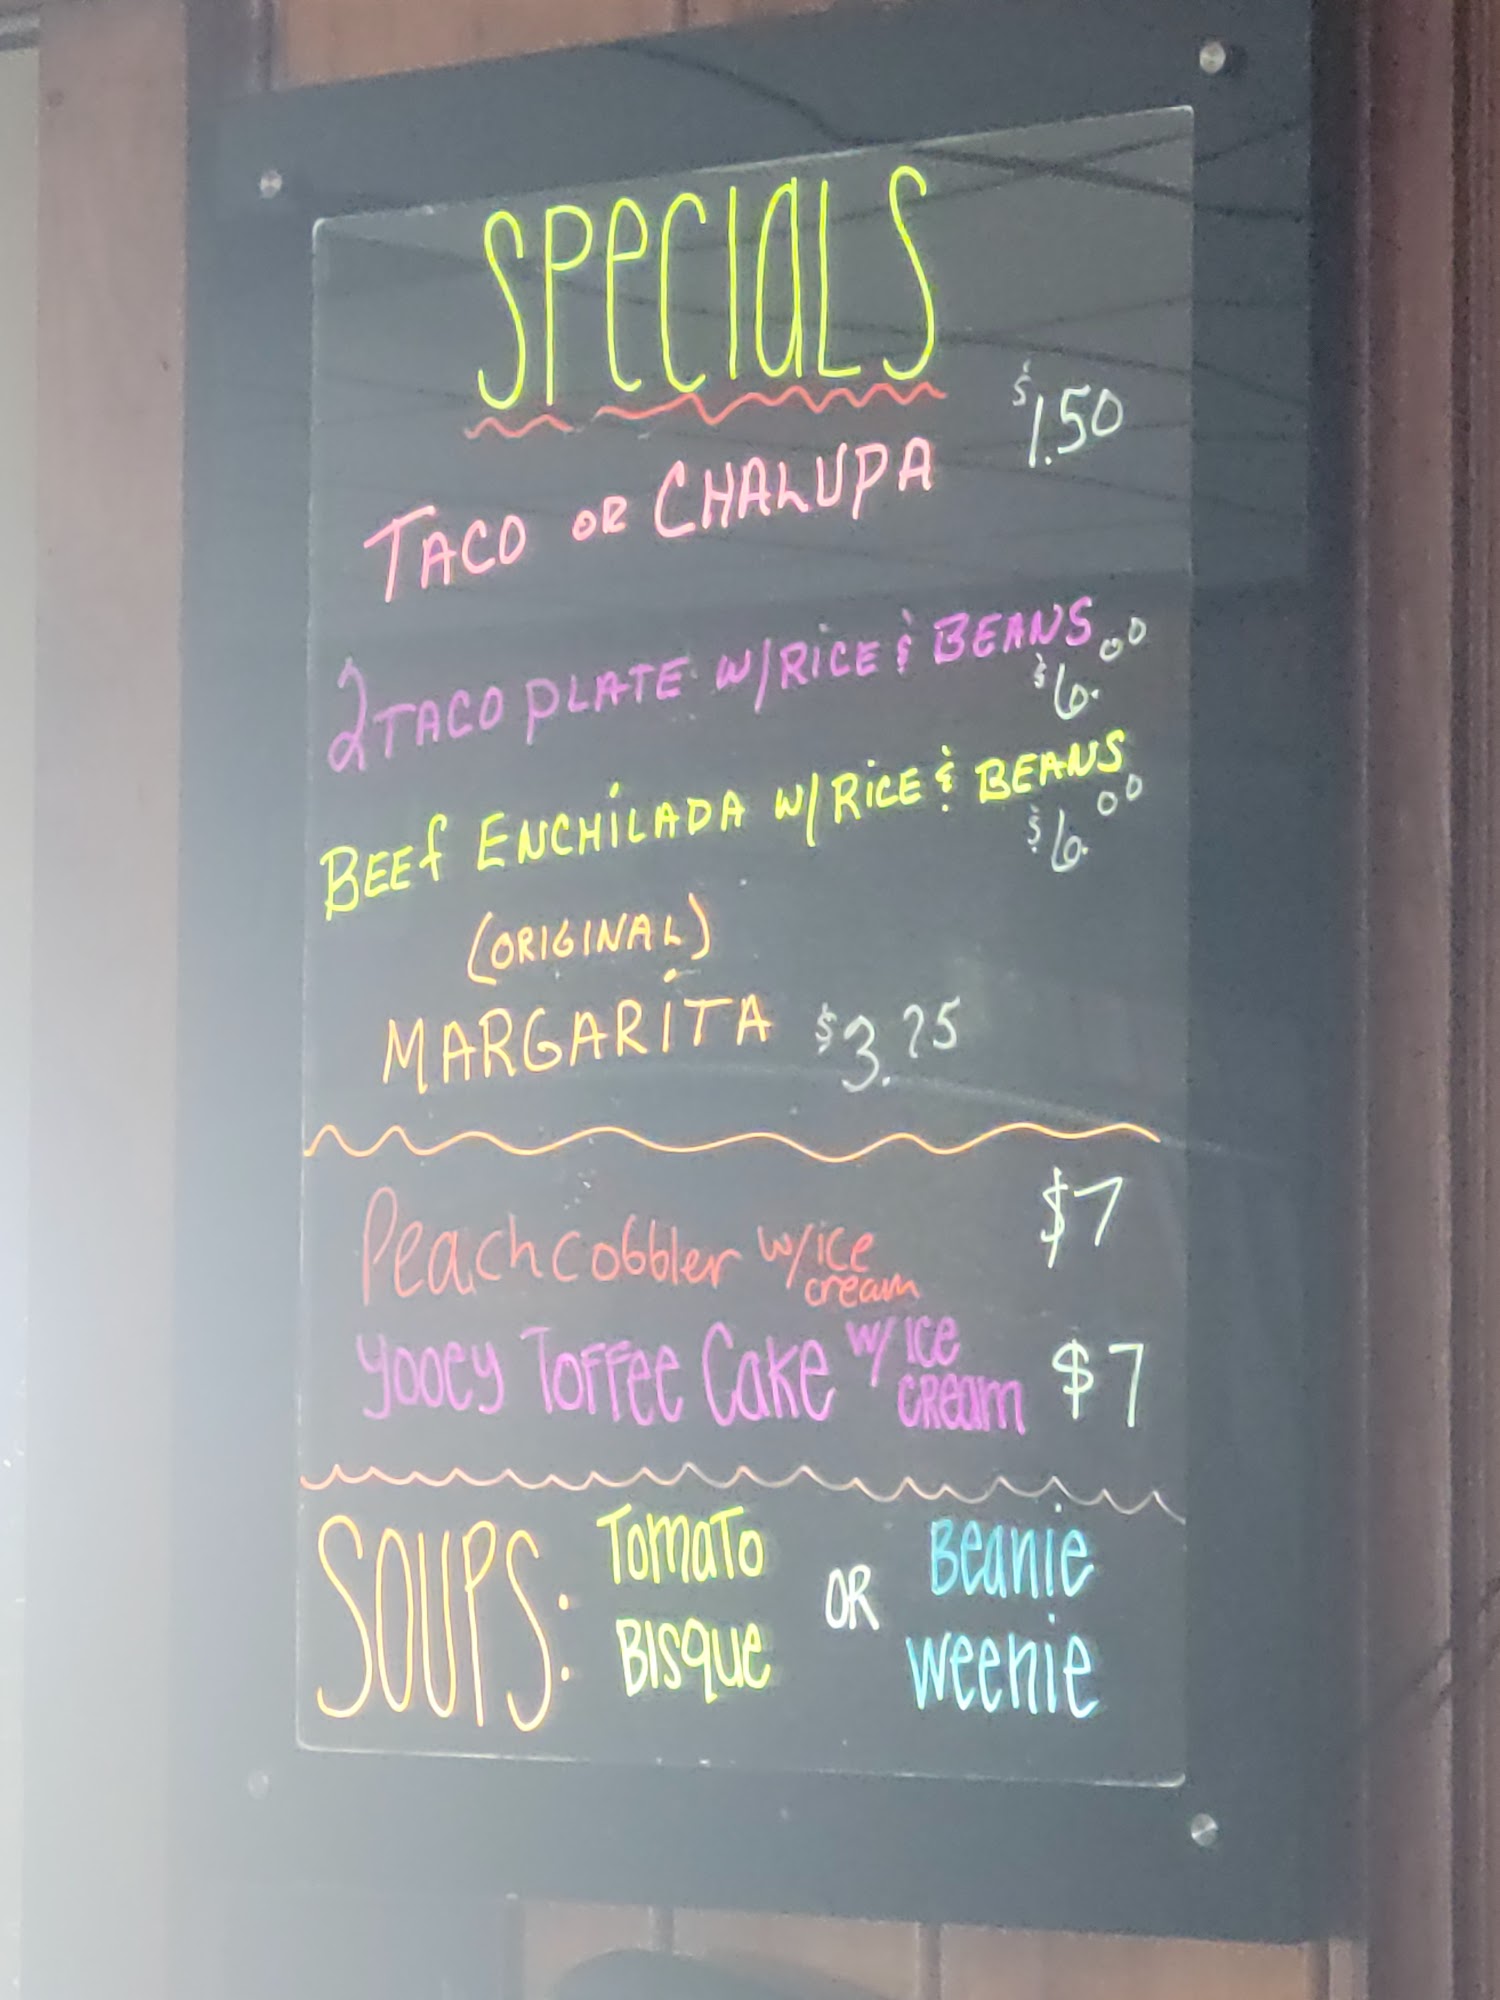 SPeCIaLS
TACO OR CHALUPA $1.50
2 TACO PLATE W/RICE & BEANS $6.00
BEEf ENCHILADA W/RICE & BEANS $6.00
(ORIGINAL)
MARGARITA $3.75
Peach cobbler w/ice cream $7
Gooey Toffee Cake w/ Ice CReam $7
SOUPS: Tomato Bisque OR Beanie Weenie